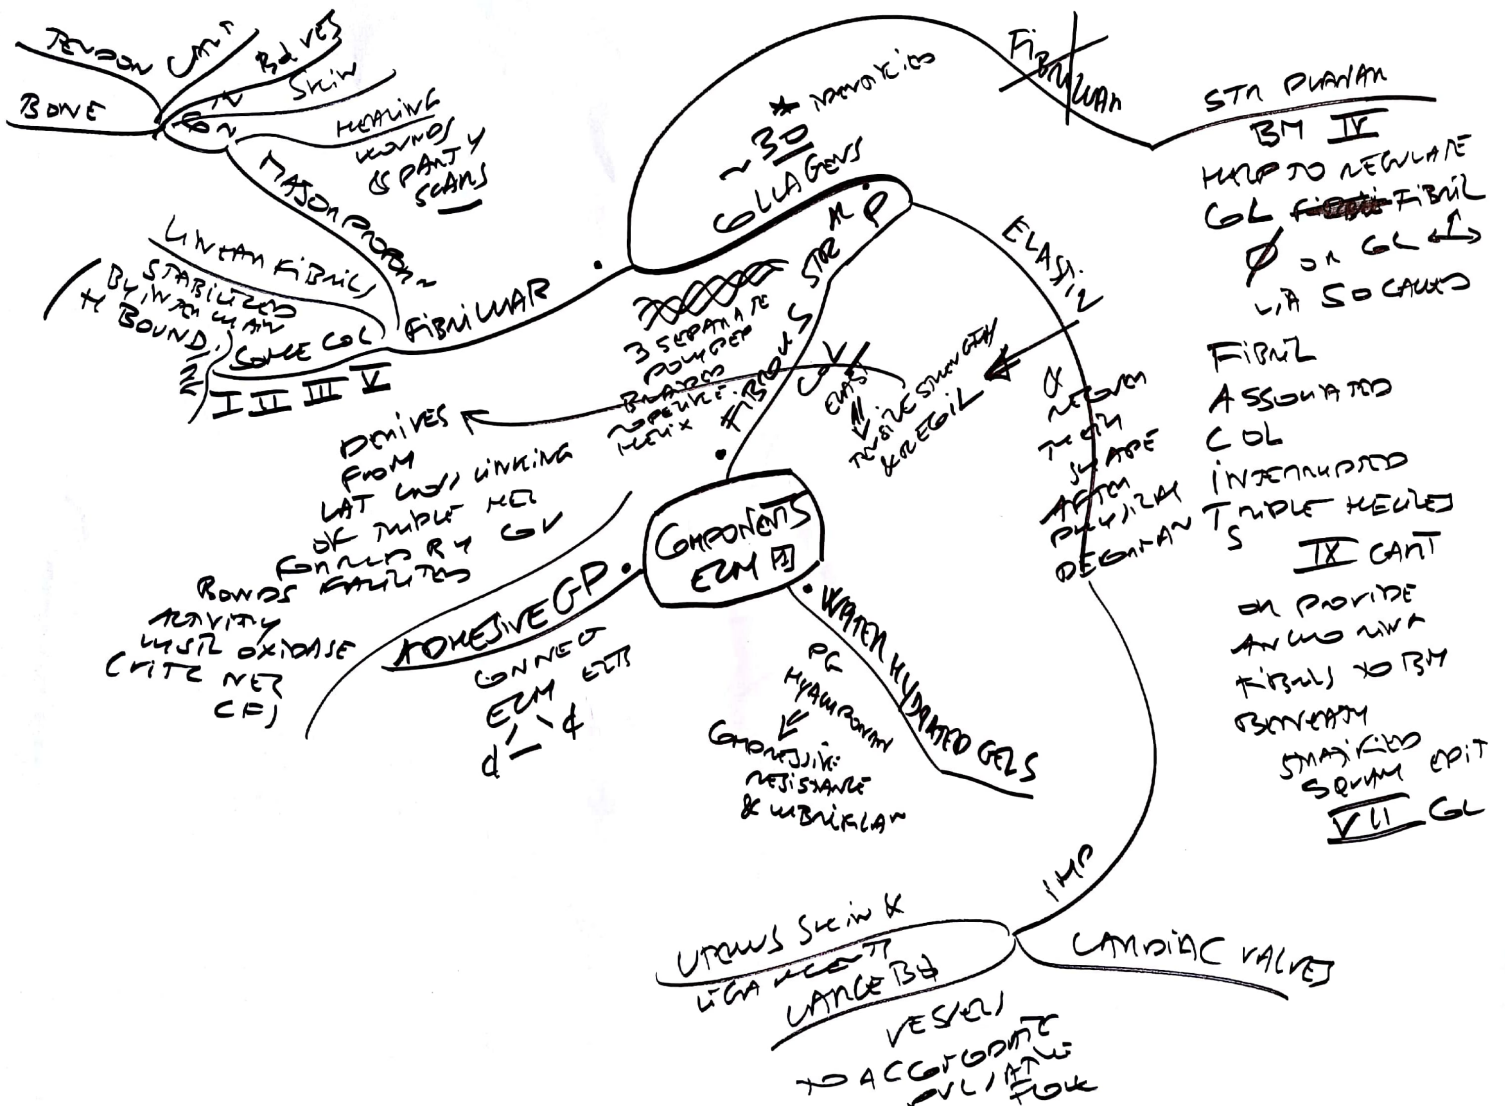 TENDON
CART
Bd VES
SKIN
BONE
HEALING
WOUNDS
ESP ARTY
SCARS
MAJOR PROPOR~
LINEAR FIBRILS
STABILIZED
BY INTER CHAIN
H BOUND.
SOME COL
I II III V
FIBRILLAR
* IDENTIFIED
~ 30
COLLAGENS
FIBRILLAR
STR PLANAR
BM IV
HELP TO REGULATE
COL FIBRIL
Ø OR COL
VIA SO CALLED
FIBRIL
ASSOCIATED
COL
INTERRUPTED
TRIPLE HELICES
IX CART
OR PROVIDE
ANCHORING
FIBRILS TO BM
BENEATH
STRATIFIED
SQUAM EPIT
VII COL
FIBROUS STRUR P
3 SEPARATE
POLYPEP
BRAIDED
ROPELIKE
HELIX
COV
ELAST
TENSILE STRENGTH
& RESIL
ELASTIN
&
RETURN
THEIR
SHAPE
AFTER
PHYSICAL
DEFORMAN
S
DERIVES
FROM
LAT CROSS LINKING
OF TRIPLE HEL
FORMED BY COV
BONDS FACILITED
ACTIVITY
LYSIL OXIDASE
COMPONENTS
ECM 1
ADHESIVE GP
CONNECT
ECM ELTS
WATER HYDRATED GELS
PG
HYALURONAN
COMPRESSIVE
RESISTANCE
& LUBRICAN
IMP
UTERUS SKIN &
LIGAMENTS
LARGE Bd
VESSELS
TO ACCOMODATE
PULSATILE
FLOW
CARDIAC VALVES